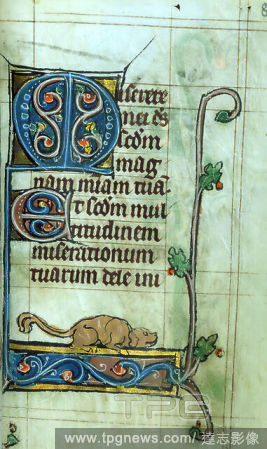 Miserere
mei ds
scdm
mag
nam miam tuā
Et scdm mul
titudinem
miserationum
tuarum dele ini
TPG
www.tpgnews.com/達志影像